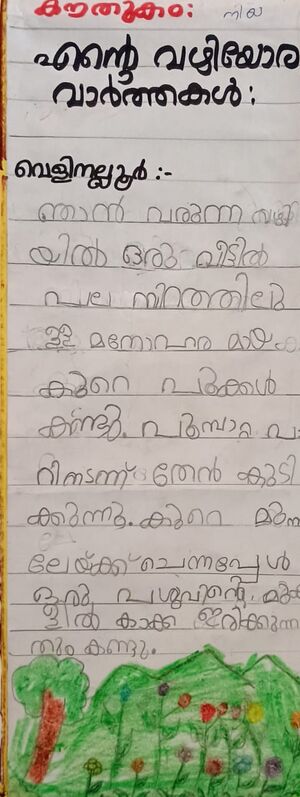 കൗതുകം: നിയ
എന്റെ വഴിയോര
വാർത്തകൾ:
വെളിനല്ലൂർ :-
ഞാൻ വരുന്ന വഴി
യിൽ ഒരു വീട്ടിൽ
പല നിറത്തിലു
ള്ള മനോഹര മായ
കുറെ പൂക്കൾ
കണ്ടു. പൂമ്പാറ്റ പാ
റിനടന്ന് തേൻ കുടി
ക്കുന്നു. കുറെ മുന്ന
ലേയ്ക്ക് ചെന്നപ്പേൾ
ഒരു പശുവിന്റെ മുക
ളിൽ കാക്ക ഇരിക്കുന്ന
തും കണ്ടു.